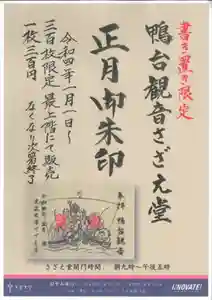 書き置き限定
鴨台観音さざえ堂
正月御朱印
令和四年一月一日～
三百枚限定 最上階にて販売
一枚三百円
なくなり次第終了
奉拝 鴨台観音
さざえ堂開門時間: 朝九時～午後五時